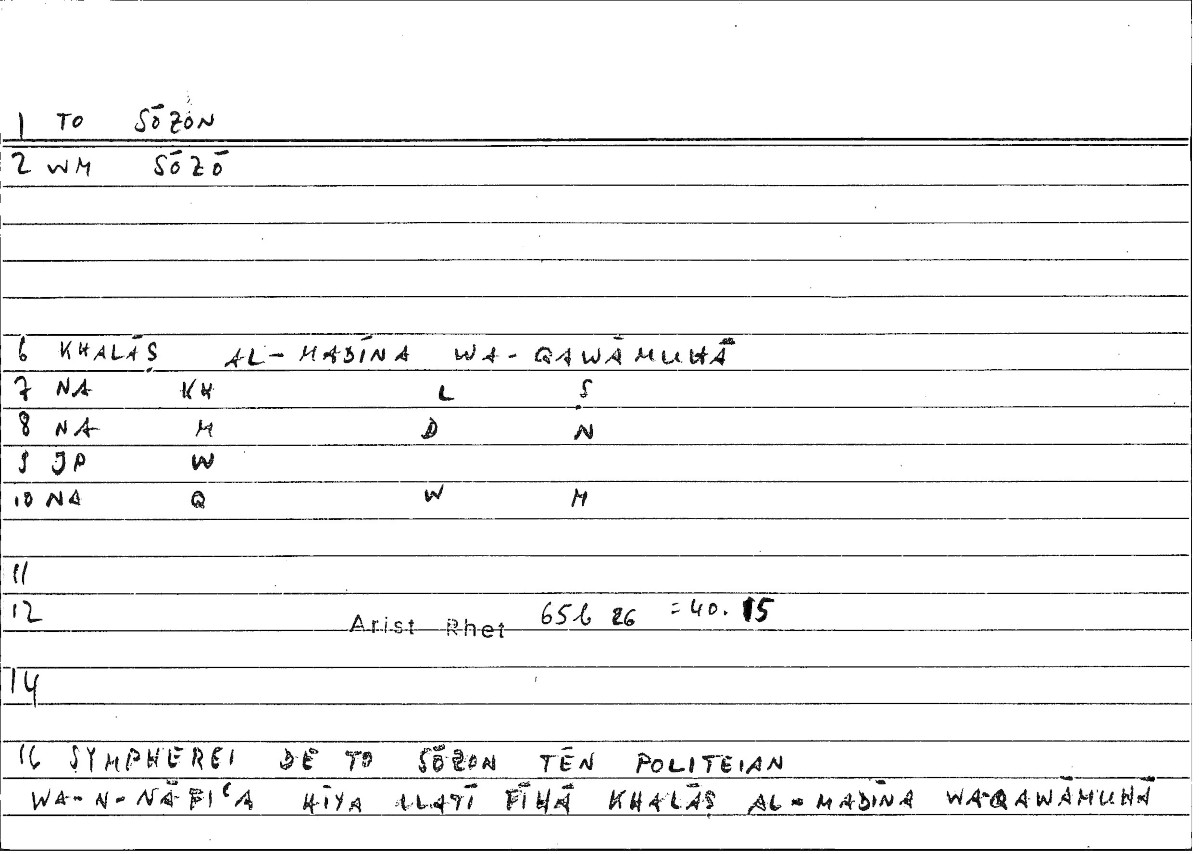 1 TO SŌZON
2 WM SŌZŌ
6 KHALĀṢ AL-MADĪNA WA-QAWĀMUHĀ
7 NA KH L Ṣ
8 NA M D N
9 JP W
10 NA Q W M
11
12 Arist Rhet 65b 26 = 40.15
14
16 SYMPHEREI DE TO SŌZON TĒN POLITEIAN
WA-N-NĀFIʿA HIYA LLATĪ FĪHĀ KHALĀṢ AL-MADĪNA WA-QAWĀMUHĀ